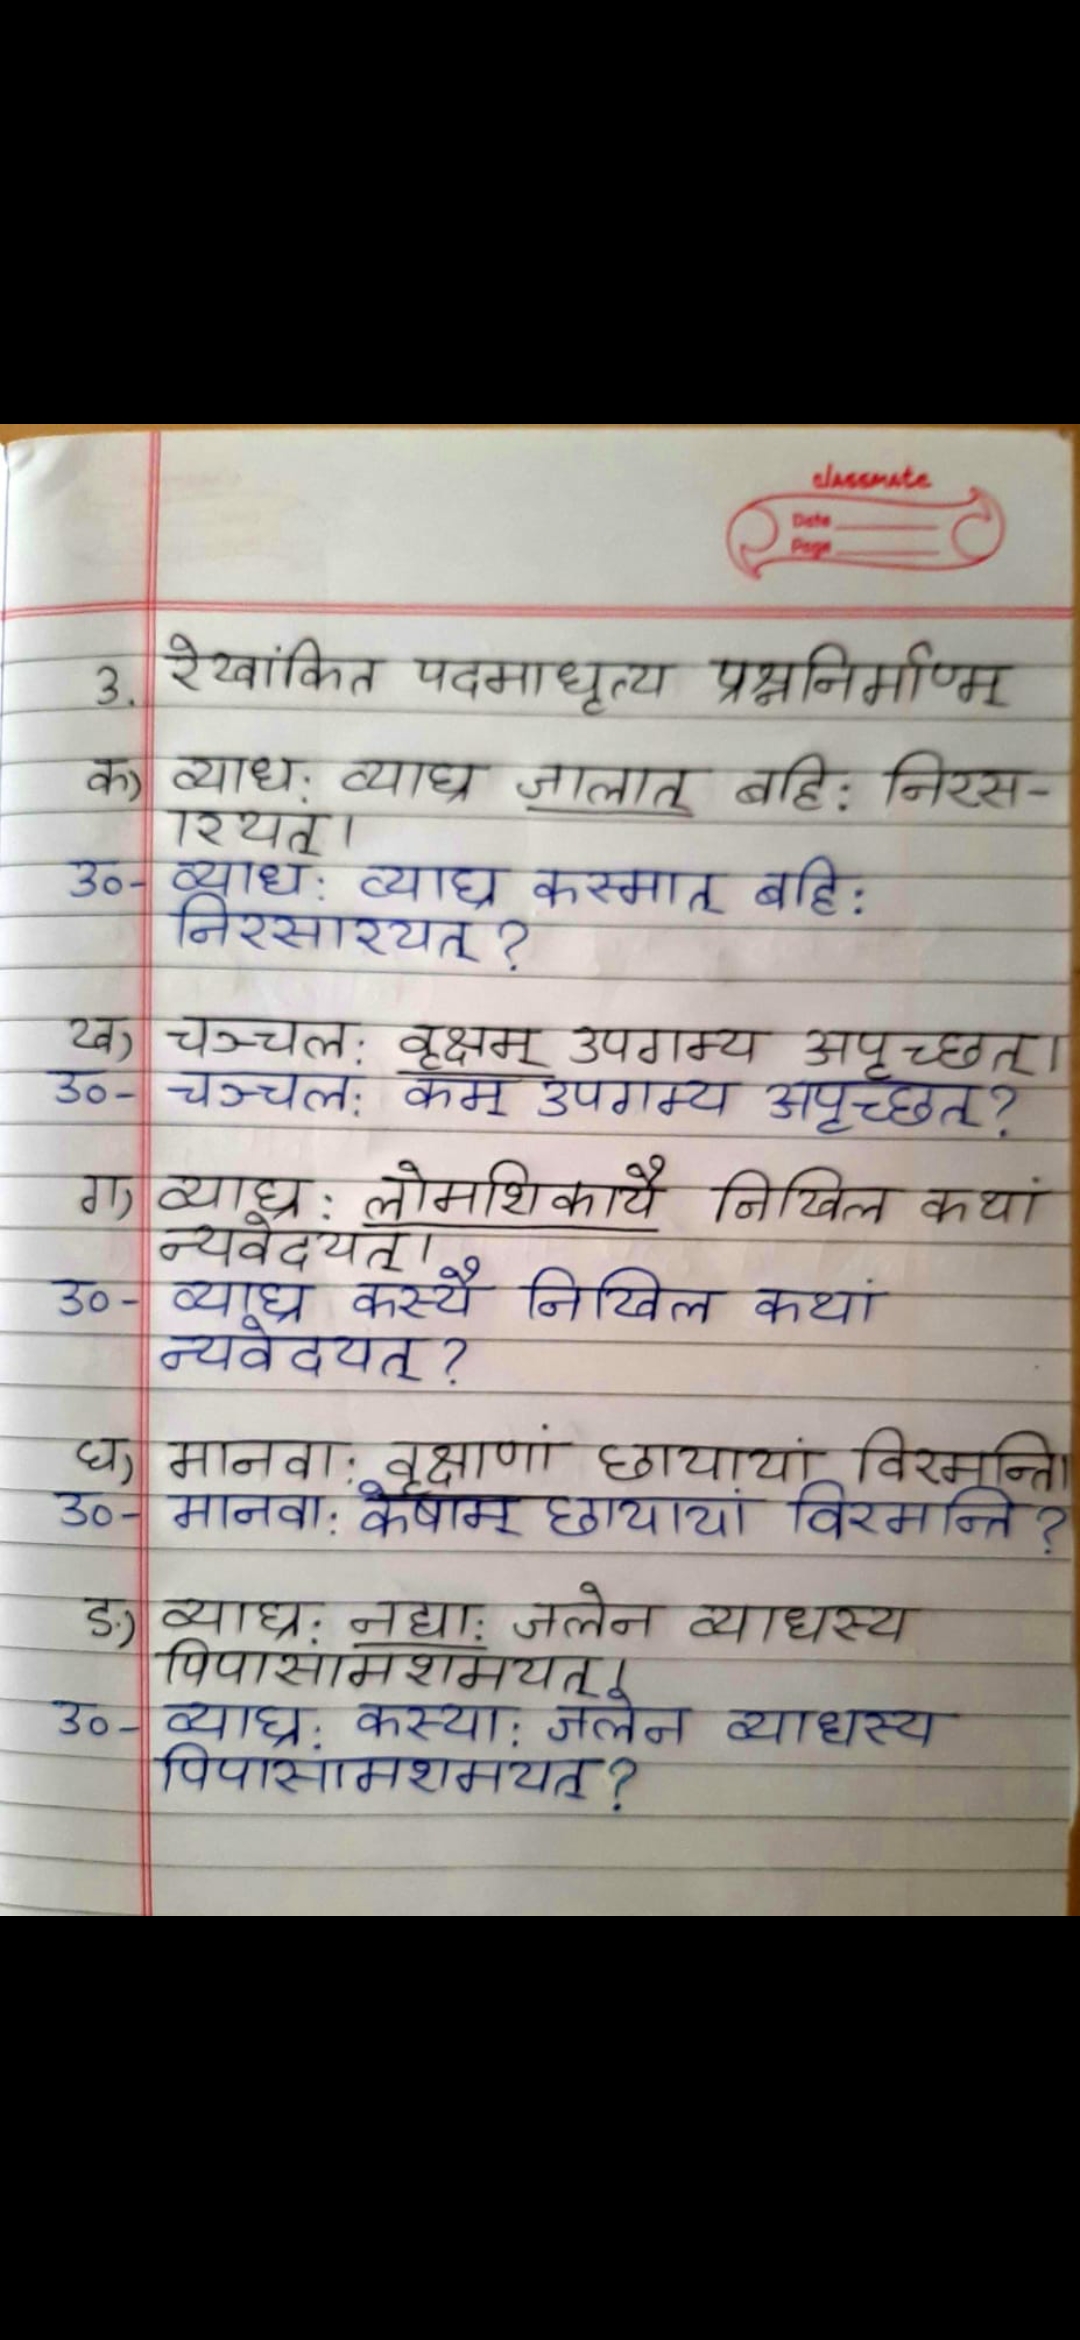 classmate
Date
Page
3. रेखांकित पदमाधृत्य प्रश्ननिर्माणम्
क) व्याधः व्याघ्र जालात् बहिः निरस-
ारयत्।
उ०- व्याधः व्याघ्र कस्मात् बहिः
निरसारयत्?
ख) चञ्चलः वृक्षम् उपगम्य अपृच्छत्।
उ०- चञ्चलः कम् उपगम्य अपृच्छत्?
ग) व्याघ्रः लोमशिकायै निखिल कथां
न्यवेदयत्।
उ०- व्याघ्र कस्यै निखिल कथां
न्यवेदयत्?
घ) मानवाः वृक्षाणां छायायां विरमन्ति।
उ०- मानवाः केषाम् छायायां विरमन्ति?
ङ) व्याघ्रः नद्याः जलेन व्याधस्य
पिपासामशमयत्।
उ०- व्याघ्रः कस्याः जलेन व्याधस्य
पिपासामशमयत्?